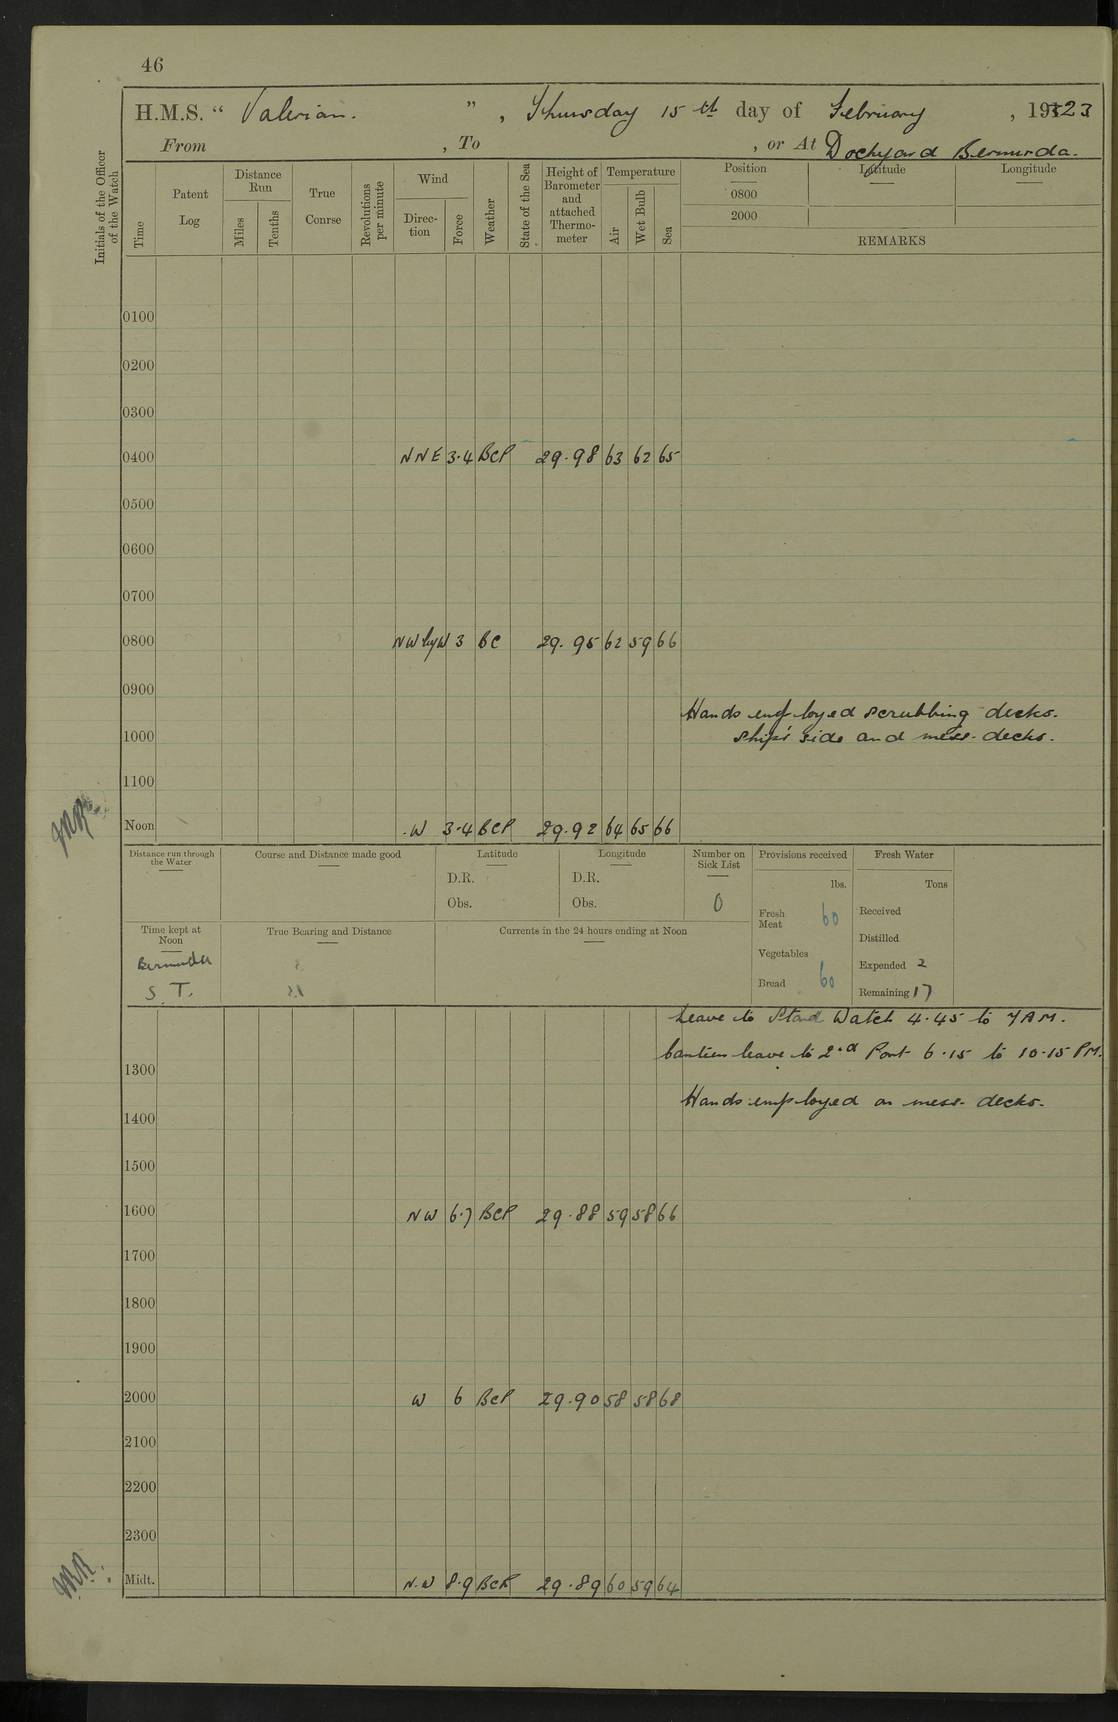 46
H.M.S. “ Valerian. ” , Thursday 15th day of February , 1923
From , To , or At Dockyard Bermuda.
Initials of the Officer of the Watch
Time
Patent Log
Distance Run
Miles
Tenths
True Course
Revolutions per minute
Wind
Direc-tion
Force
Weather
State of the Sea
Height of Barometer and attached Thermo-meter
Temperature
Air
Wet Bulb
Sea
Position Latitude Longitude
0800
2000
REMARKS
0100
0200
0300
0400 NNE 3.4 BCP 29.98 63 62 65
0500
0600
0700
0800 NW by W 3 BC 29.95 62 59 66
0900
Hands employed scrubbing decks.
1000 ship's side and mess-decks.
1100
Noon W 3-4 BCP 29.92 64 65 66
Distance run through the Water
Course and Distance made good
Latitude
D.R.
Obs.
Longitude
D.R.
Obs.
Number on Sick List
0
Provisions received
lbs.
Fresh Meat 60
Vegetables
Bread 60
Fresh Water
Tons
Received
Distilled
Expended 2
Remaining 17
Time kept at Noon
Bermuda
S. T.
True Bearing and Distance
Currents in the 24 hours ending at Noon
Leave to Stard Watch 4.45 to 7 AM.
Canteen leave to 2nd Part 6.15 to 10.15 PM.
1300
Hands employed on mess-decks.
1400
1500
1600 NW 6.7 BCP 29.88 59 58 66
1700
1800
1900
2000 W 6 BCP 29.90 58 58 68
2100
2200
2300
Midt. N.W 8.9 BCR 29.89 60 59 64